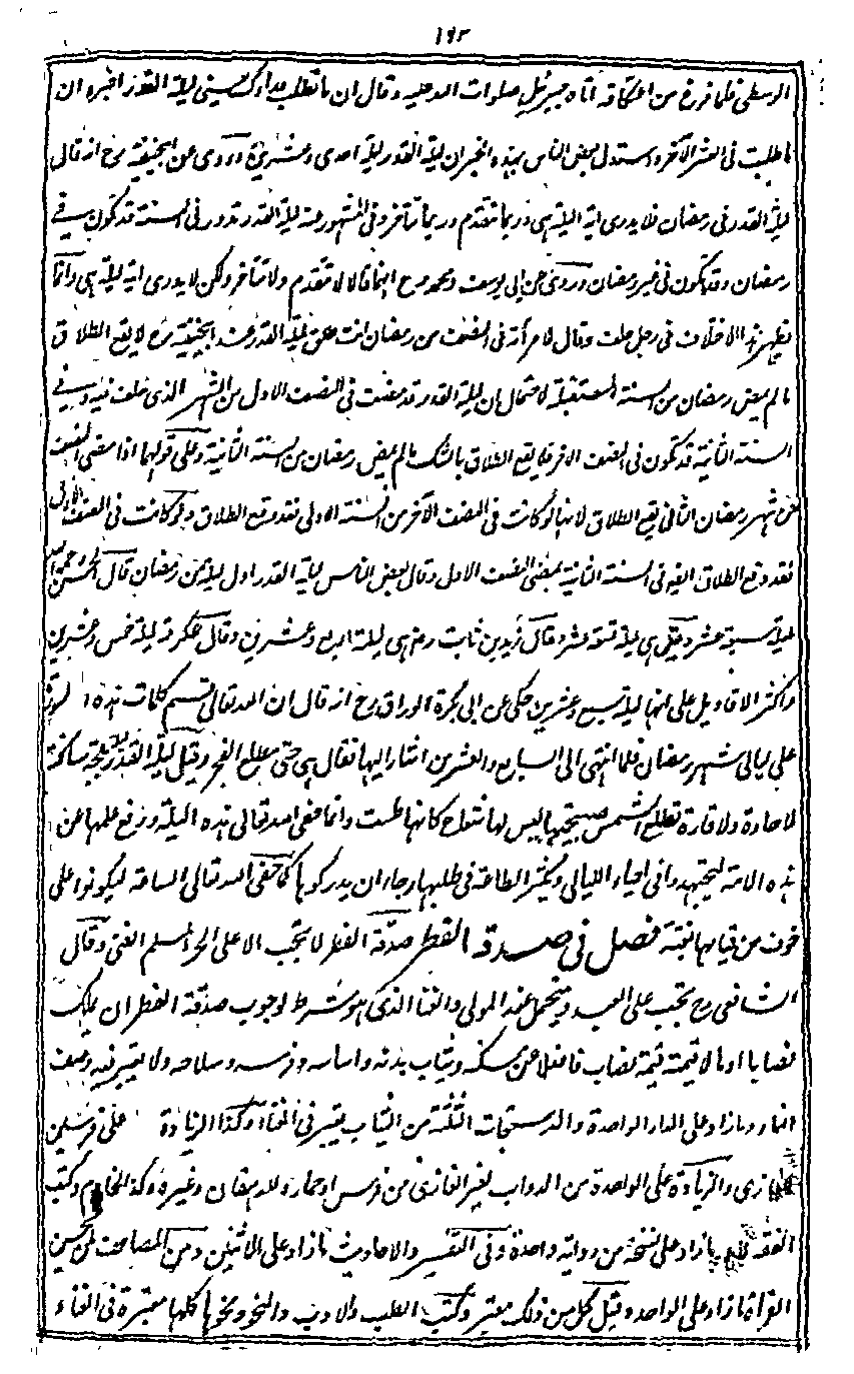 ١٩٢
الوسطى فلما فرغ من اعتكافه اتاه جبرئيل صلوات الله عليه وقال ان ما تطلب وراءك يعنى ليلة القدر اخبره ان
ما طلبت فى العشر الآخر واستدل بعض الناس بهذه الخبر ان ليلة القدر ليلة احدى وعشرين وروى عن ابيحنيفة رح انه قال
ليلة القدر فى رمضان فلا يدرى اية ليلة هى وربما تتقدم وربما تتأخر وفى المشهور عنه ليلة القدر تدور فى السنة قد تكون فى
رمضان وقد تكون فى غير رمضان وروى عن ابى يوسف ومحمد رح انهما قالا لا تتقدم ولا تتأخر ولكن لا يدرى اية ليلة هى وانما
يظهر هذا الاختلاف فى رجل حلف وقال لامرأته فى النصف من رمضان انت طالق ليلة القدر عند ابيحنيفة رح لا يقع الطلاق
ما لم يمض رمضان من السنة المستقبلة لاحتمال ان ليلة القدر قد مضت فى النصف الاول من الشهر الذى حلف فيه وفى
السنة الثانية قد تكون فى النصف الاخر فلا يقع الطلاق بالشك ما لم يمض رمضان من السنة الثانية وعلى قولهما اذا مضى النصف
من شهر رمضان الثانى يقع الطلاق لانها لو كانت فى النصف الآخر من السنة الاولى فقد وقع الطلاق ولو كانت فى النصف الاول
فقد وقع الطلاق ايضا فى السنة الثانية بمضى النصف الاول وقال بعض الناس ليلة القدر اول ليلة من رمضان قال الحسن رحمه الله
ليلة سبعة عشر وقيل هى ليلة تسعة عشر وقال زيد بن ثابت رض هى ليلة اربع وعشرين وقال عكرمة ليلة خمس وعشرين
واكثر الاقاويل على انها ليلة سبع وعشرين حكى عن ابى بكرة الوراق رح انه قال ان الله تعالى قسم كلمات هذه السورة
على ليالى شهر رمضان فلما انتهى الى السابع والعشرين اشار اليها فقال هى حتى مطلع الفجر وقيل ليلة القدر بلجة ساكنة
لا حارة ولا قارة تطلع الشمس صبيحتها ليس لها شعاع كانها طست وانما خفى الله تعالى هذه الليلة ورفع علمها عن
هذه الامة ليجتهدوا فى احياء الليالى وتكثير الطاعة فى طلبها رجاء ان يدركوها كما خفى الله تعالى الساعة ليكونوا على
خوف من قيامها بغتة فصل فى صدقة الفطر صدقة الفطر لا تجب الا على الحر المسلم الغنى وقال
الشافعى رح تجب على العبد ويتحمل عنه المولى والغنا الذى هو شرط لوجوب صدقة الفطر ان يملك
نصابا او مالا قيمته قيمة نصاب فاضلا عن مسكنه وثياب بدنه واساسه وفرسه وسلاحه ولا يعتبر فيه وصف
النماء وما زاد على الدار الواحدة والدستجات الثلثة من الثياب يعتبر فى الغناء وكذا الزيادة على فرسين
للغازى والزيادة على الواحدة من الدواب لغير الغازى من فرس او حمار وللدهقان وغيره وكذا الخادم وكتب
الفقه ما زاد على نسخة من رواية واحدة وفى التفسير والاحاديث ما زاد على الاثنين ومن المصاحف لمن يحسن
القراءة ما زاد على الواحد وقيل كل من ذلك معتبر وكتب الطب والادب والنحو ونحوها كلها معتبرة فى الغناء